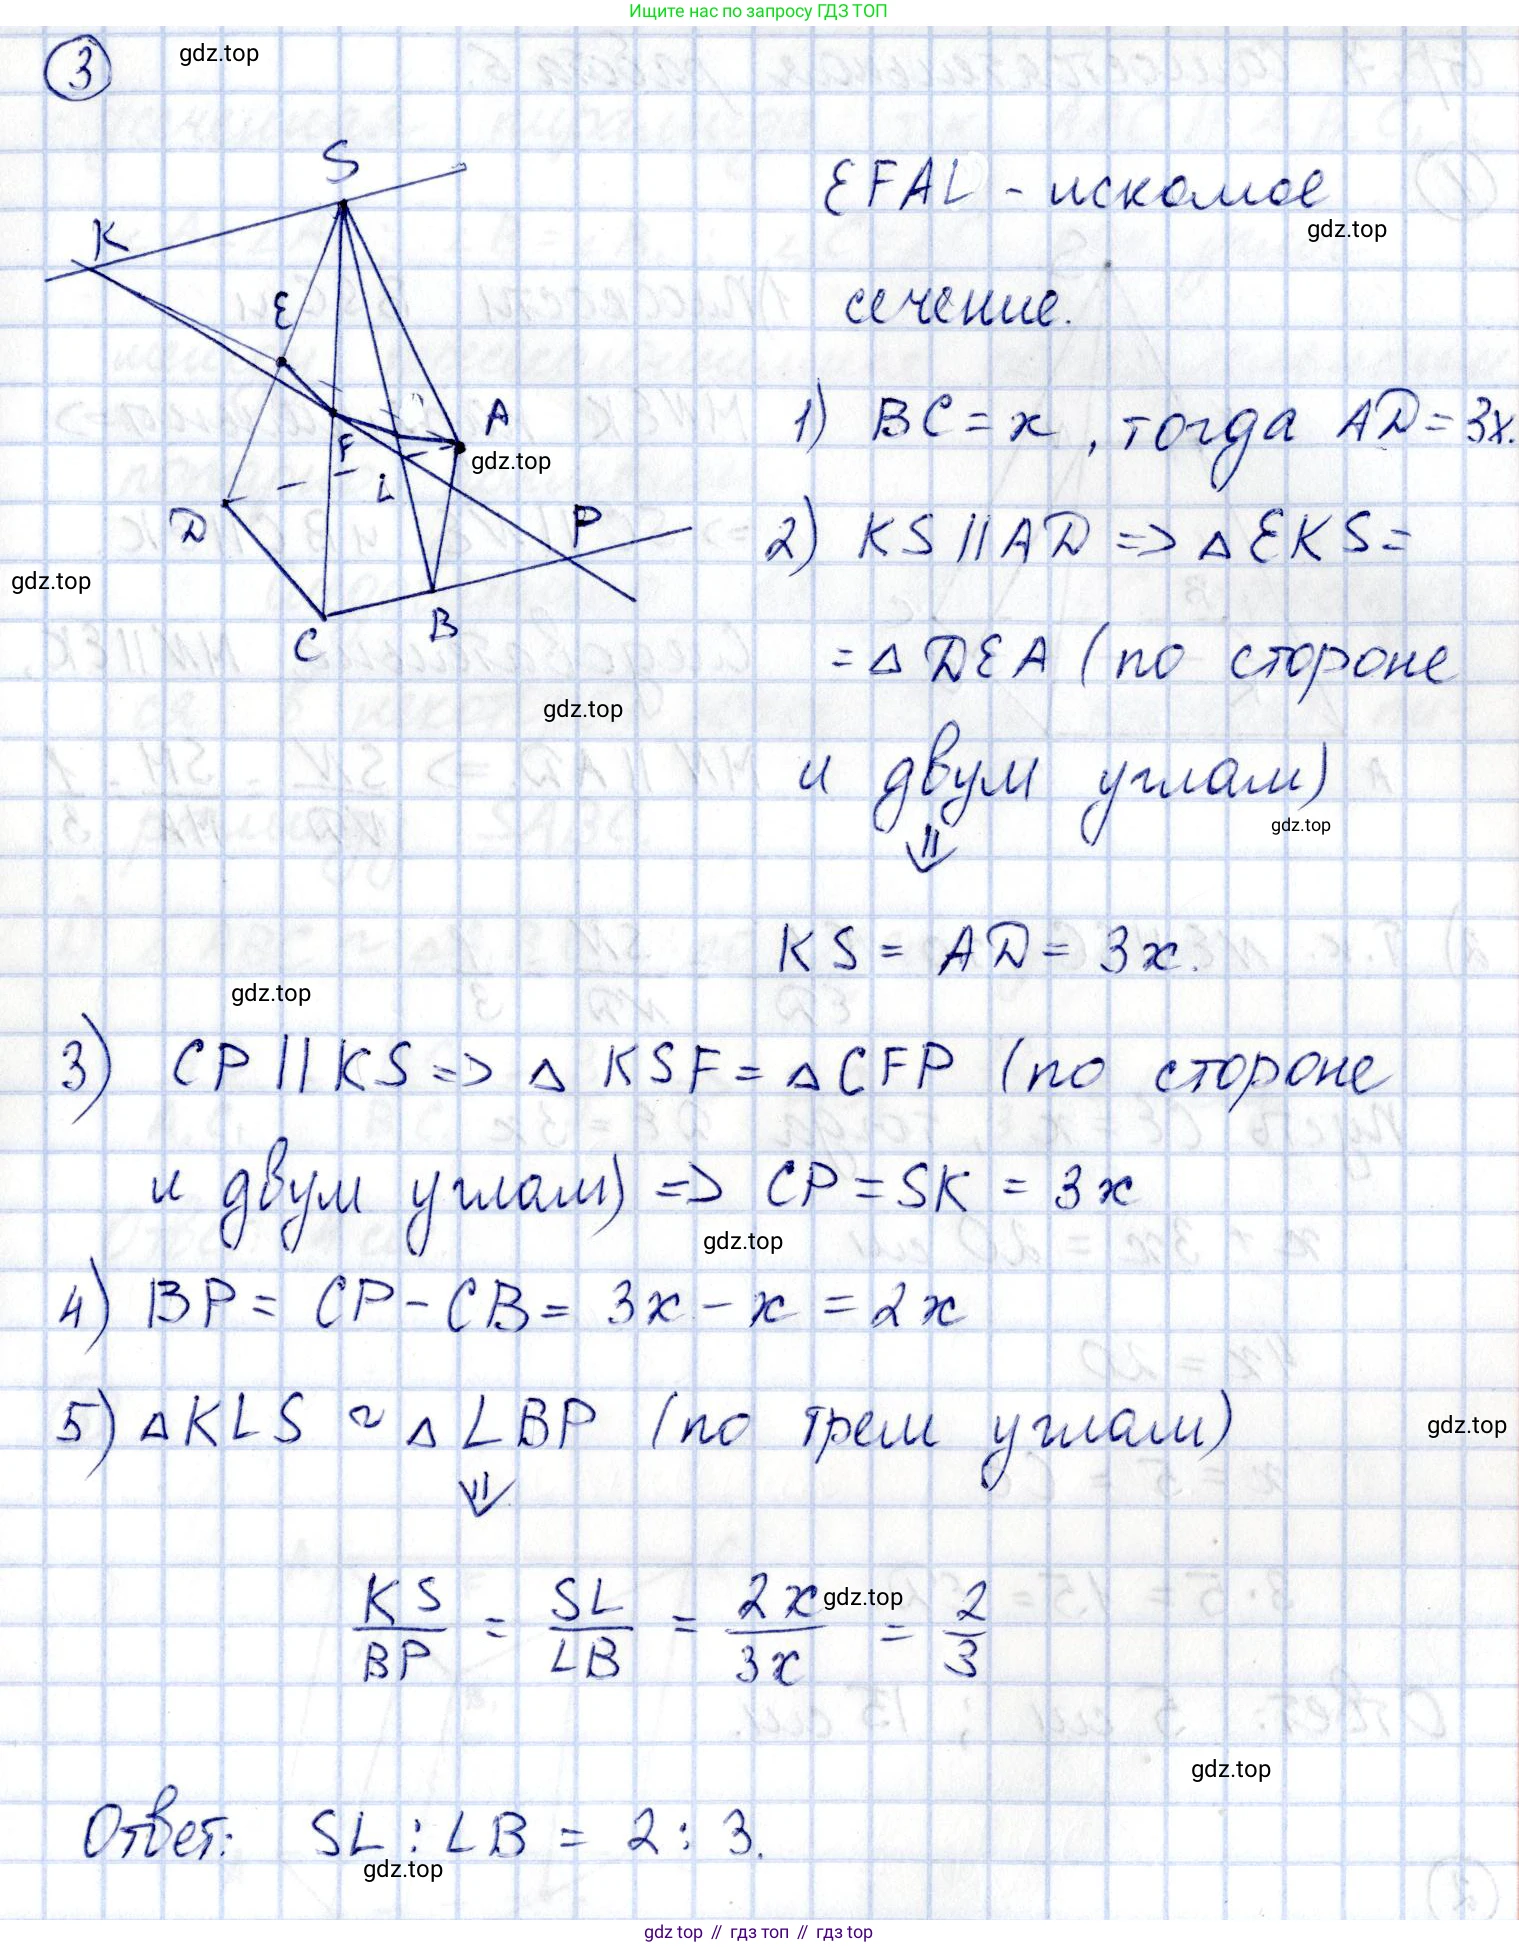 Ищите нас по запросу ГДЗ ТОП
3
gdz.top
S
K
E
F
A
gdz.top
L
D
P
C
B
gdz.top
gdz.top
EFAL - искомое
gdz.top
сечение.
1) BC = x, тогда AD = 3x.
2) KS || AD => △ EKS =
= △ DEA (по стороне
и двум углам)
gdz.top
⇓
KS = AD = 3x.
gdz.top
3) CP || KS => △ KSF = △ CFP (по стороне
и двум углам) => CP = SK = 3x
gdz.top
4) BP = CP - CB = 3x - x = 2x
5) △ KLS ~ △ LBP (по трем углам)
gdz.top
⇓
KS/BP = SL/LB = 2x/3x = 2/3
gdz.top
gdz.top
Ответ: SL : LB = 2 : 3.
gdz.top
gdz.top // гдз топ // гдз top